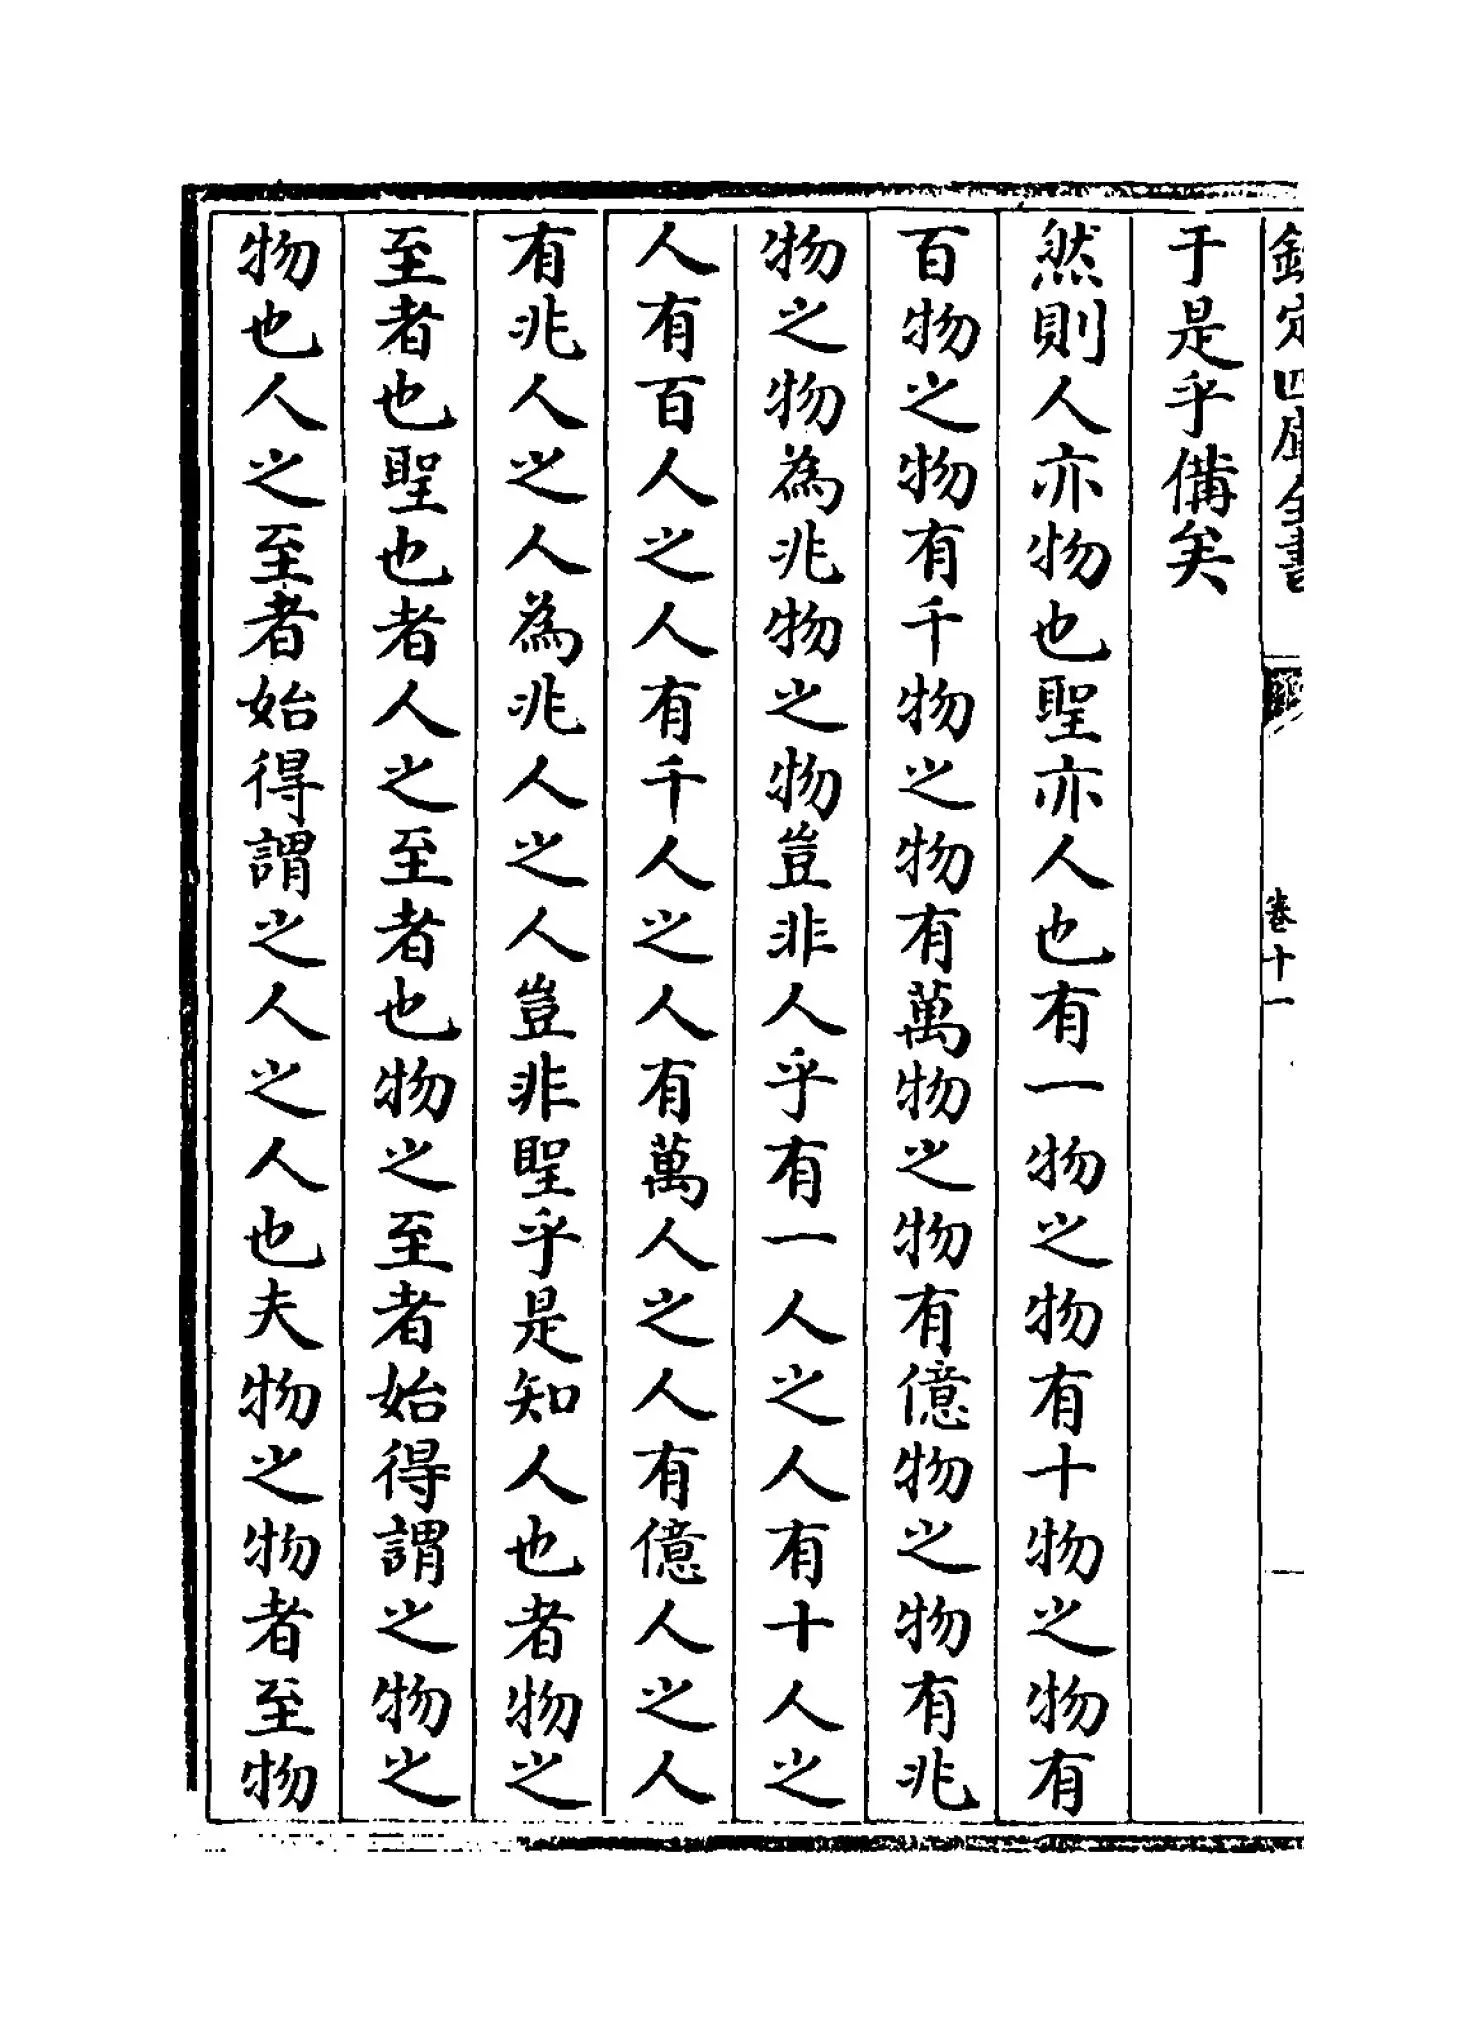 欽定四庫全書
卷十一
于是乎備矣
然則人亦物也聖亦人也有一物之物有十物之物有
百物之物有千物之物有萬物之物有億物之物有兆
物之物為兆物之物豈非人乎有一人之人有十人之
人有百人之人有千人之人有萬人之人有億人之人
有兆人之人為兆人之人豈非聖乎是知人也者物之
至者也聖也者人之至者也物之至者始得謂之物之
物也人之至者始得謂之人之人也夫物之物者至物